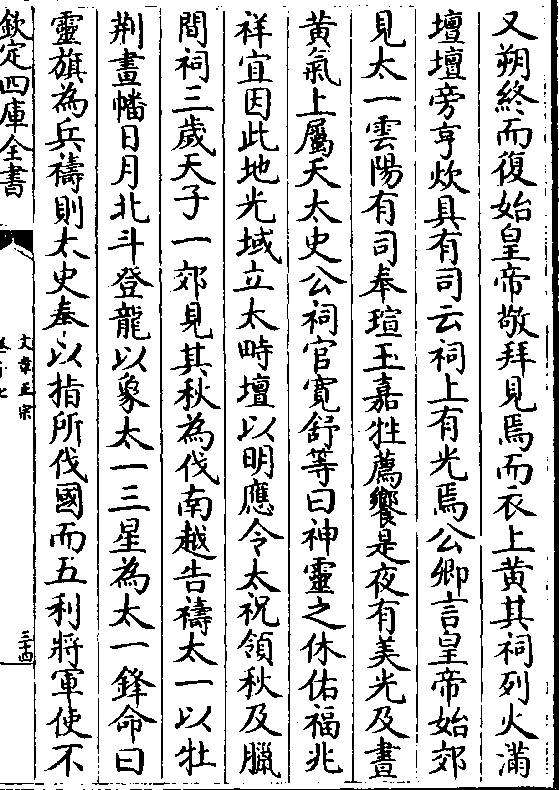 又朔終而復始皇帝敬拜見焉而衣上黄其祠列火滿
壇壇旁亨炊具有司云祠上有光焉公卿言皇帝始郊
見太一雲陽有司奉瑄玉嘉牲薦饗是夜有美光及晝
黄氣上屬天太史公祠官寛舒等曰神靈之休佑福兆
祥宜因此地光域立太畤壇以明應令太祝領秋及臘
間祠三歲天子一郊見其秋為伐南越告禱太一以牡
荆畫幡日月北斗登龍以象太一三星為太一鋒命曰
靈旗為兵禱則太史奉以指所伐國而五利將軍使不
欽定四庫全書
文章正宗
三十四